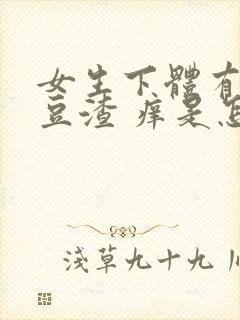 女生下體有
豆渣 痒是怎
淺草九十九